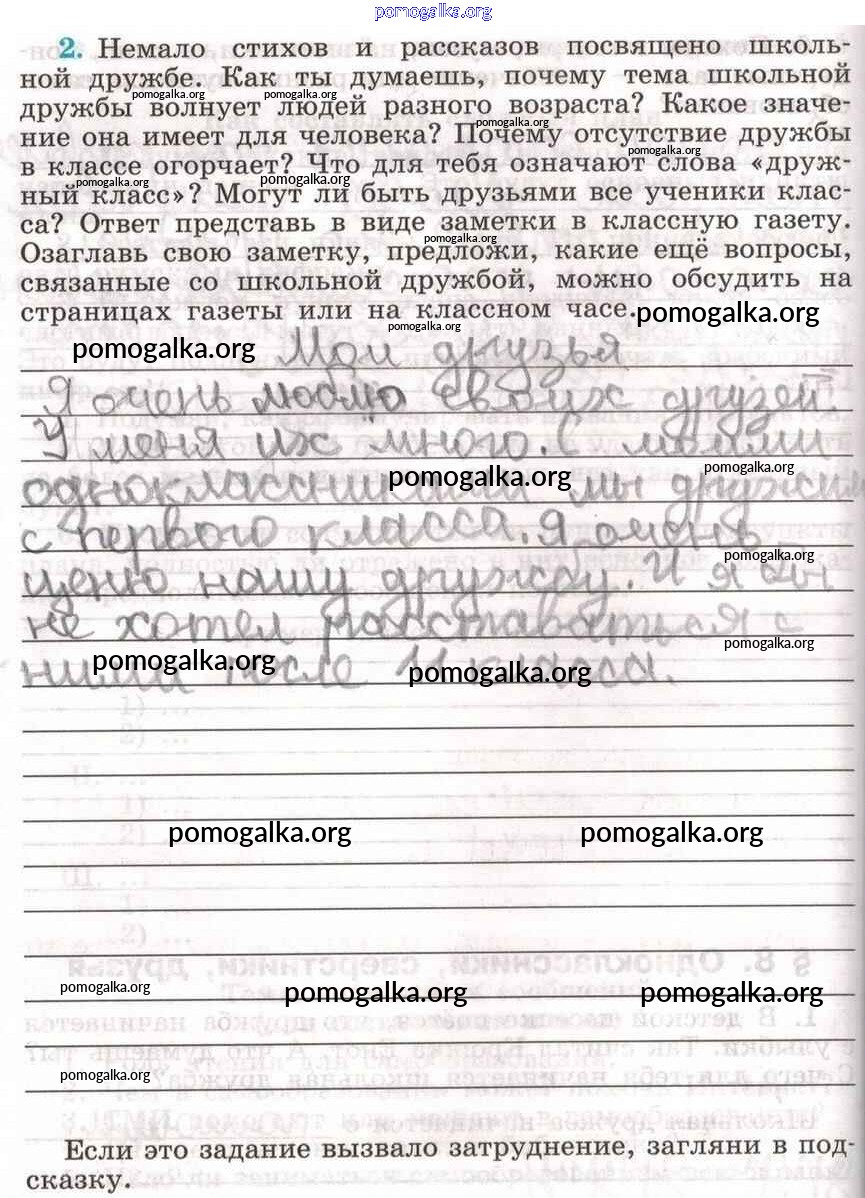 pomogalka.org
2. Немало стихов и рассказов посвящено школь-
ной дружбе. Как ты думаешь, почему тема школьной
pomogalka.org pomogalka.org
дружбы волнует людей разного возраста? Какое значе-
pomogalka.org
ние она имеет для человека? Почему отсутствие дружбы
pomogalka.org
в классе огорчает? Что для тебя означают слова «друж-
pomogalka.org pomogalka.org
ный класс»? Могут ли быть друзьями все ученики клас-
са? Ответ представь в виде заметки в классную газету.
pomogalka.org
Озаглавь свою заметку, предложи, какие ещё вопросы,
связанные со школьной дружбой, можно обсудить на
страницах газеты или на классном часе.
pomogalka.org
pomogalka.org
pomogalka.org
Мои друзья
Я очень люблю своих друзей
У меня их много. С моими
pomogalka.org
pomogalka.org
одноклассниками мы дружим
с первого класса. Я очень
pomogalka.org
ценю нашу дружбу. И я бы
не хотел расставаться с
pomogalka.org
ними после 11 класса.
pomogalka.org
pomogalka.org
pomogalka.org pomogalka.org
pomogalka.org pomogalka.org pomogalka.org
§ 8. Одноклассники, сверстники, друзья
pomogalka.org
Если это задание вызвало затруднение, загляни в под-
сказку.